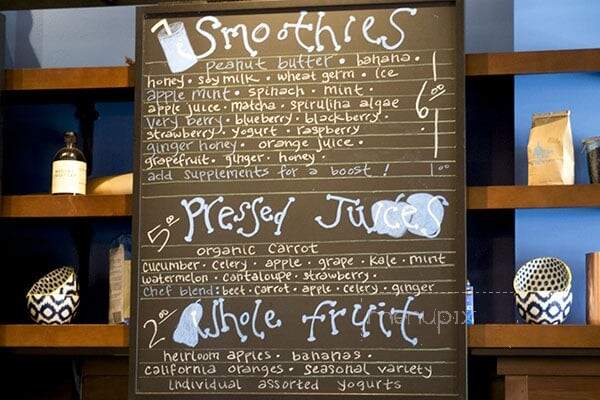 Smoothies
peanut butter • banana •
honey • soy milk • wheat germ • ice
apple mint • spinach • mint •
apple juice • matcha • spirulina algae
6⁰⁰
very berry • blueberry • blackberry •
strawberry • yogurt • raspberry
ginger honey • orange juice •
grapefruit • ginger • honey •
add supplements for a boost ! 1⁰⁰
5⁰⁰ Pressed Juices
organic carrot
cucumber • celery • apple • grape • kale • mint
watermelon • cantaloupe • strawberry •
chef blend: beet • carrot • apple • celery • ginger
2⁰⁰ Whole fruit
menupix
heirloom apples • bananas •
california oranges • seasonal variety
individual assorted yogurts